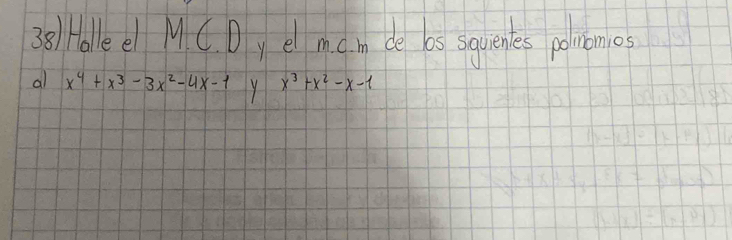 38) Halle el M.C.D y el m.c.m de los siguientes polinomios
a) x⁴ + x³ - 3x² - 4x - 1 y x³ + x² - x - 1